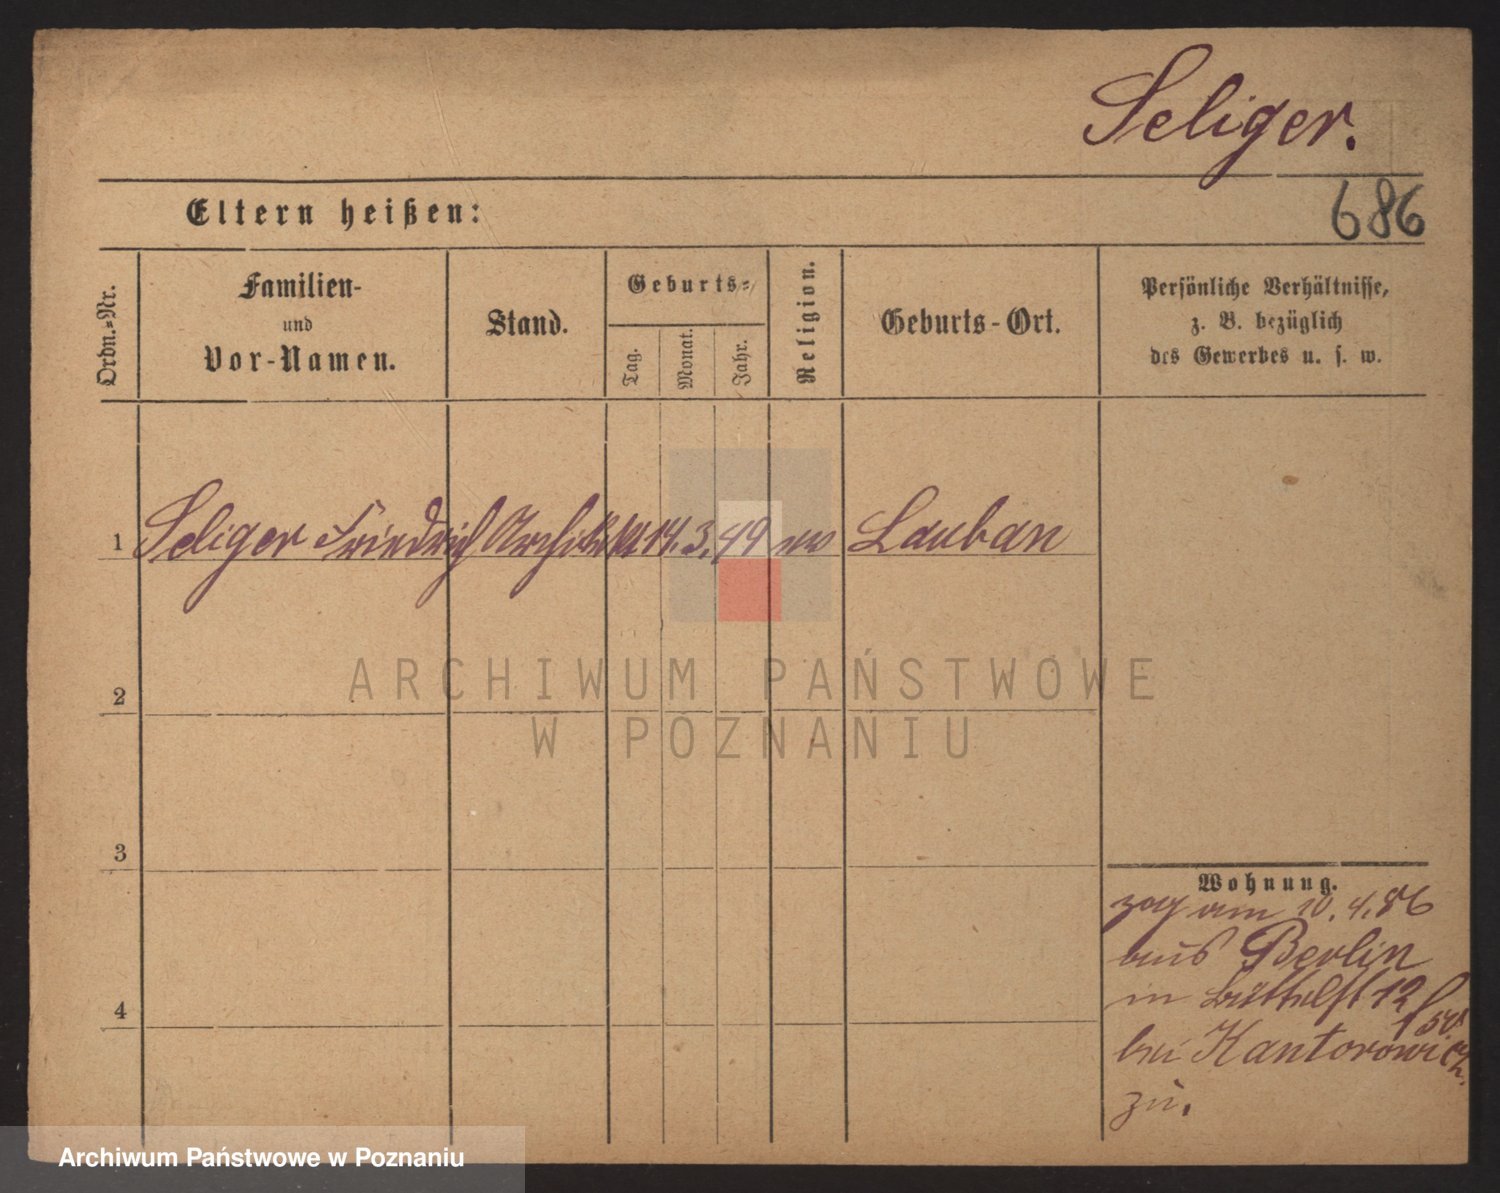 Seliger.
686
Eltern heißen:
Ordn.=Nr.
Familien-
und
Vor-Namen.
Stand.
Geburts=
Tag.
Monat.
Jahr.
Religion.
Geburts-Ort.
Persönliche Verhältnisse,
z. B. bezüglich
des Gewerbes u. s. w.
1 Seliger Friedrich Architekt 14. 3. 49 ev Lauban
2
3
4
Wohnung.
zog am 10. 4. 86
aus Berlin
in Büttelst 12
bei Kantorowicz
zu.
ARCHIWUM PAŃSTWOWE
W POZNANIU
Archiwum Państwowe w Poznaniu